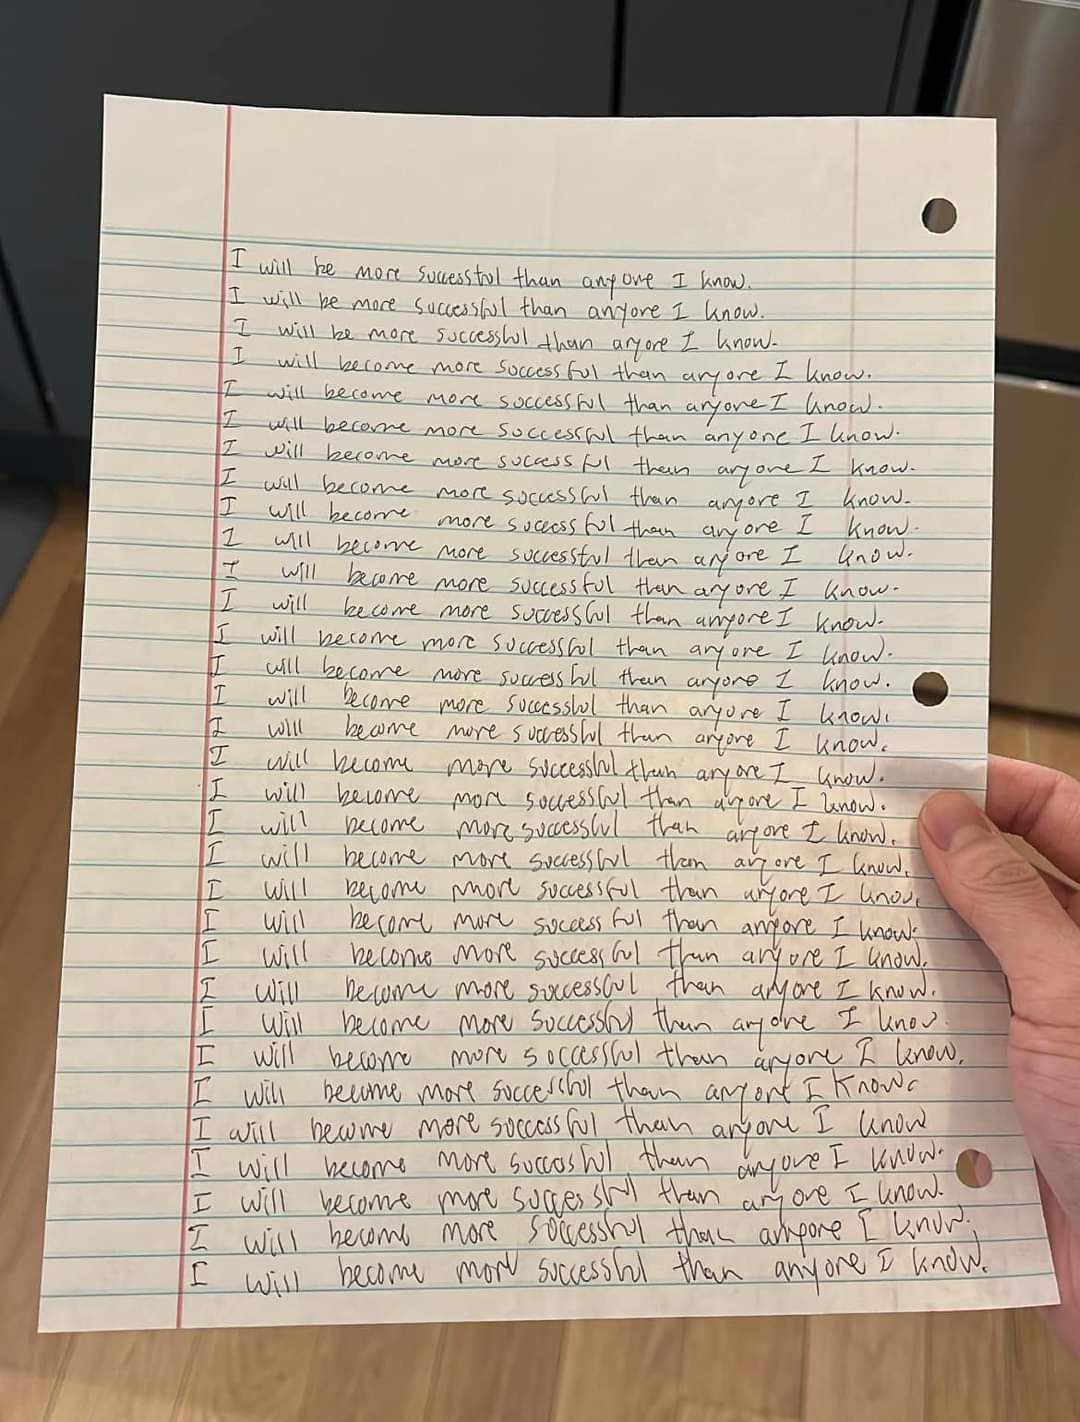 I will be more successful than anyone I know.
I will be more successful than anyone I know.
I will be more successful than anyone I know.
I will become more successful than anyone I know.
I will become more successful than anyone I know.
I will become more successful than anyone I know.
I will become more successful than anyone I know.
I will become more successful than anyone I know.
I will become more successful than anyone I know.
I will become more successful than anyone I know.
I will become more successful than anyone I know.
I will become more successful than anyone I know.
I will become more successful than anyone I know.
I will become more successful than anyone I know.
I will become more successful than anyone I know.
I will become more successful than anyone I know.
I will become more successful than anyone I know.
I will become more successful than anyone I know.
I will become more successful than anyone I know.
I will become more successful than anyone I know.
I will become more successful than anyone I know.
I will become more successful than anyone I know.
I will become more successful than anyone I know.
I will become more successful than anyone I know.
I will become more successful than anyone I know.
I will become more successful than anyone I know.
I will become more successful than anyone I know.
I will become more successful than anyone I know
I will become more successful than anyone I know.
I will become more successful than anyone I know.
I will become more successful than anyone I know.
I will become more successful than anyone I know.